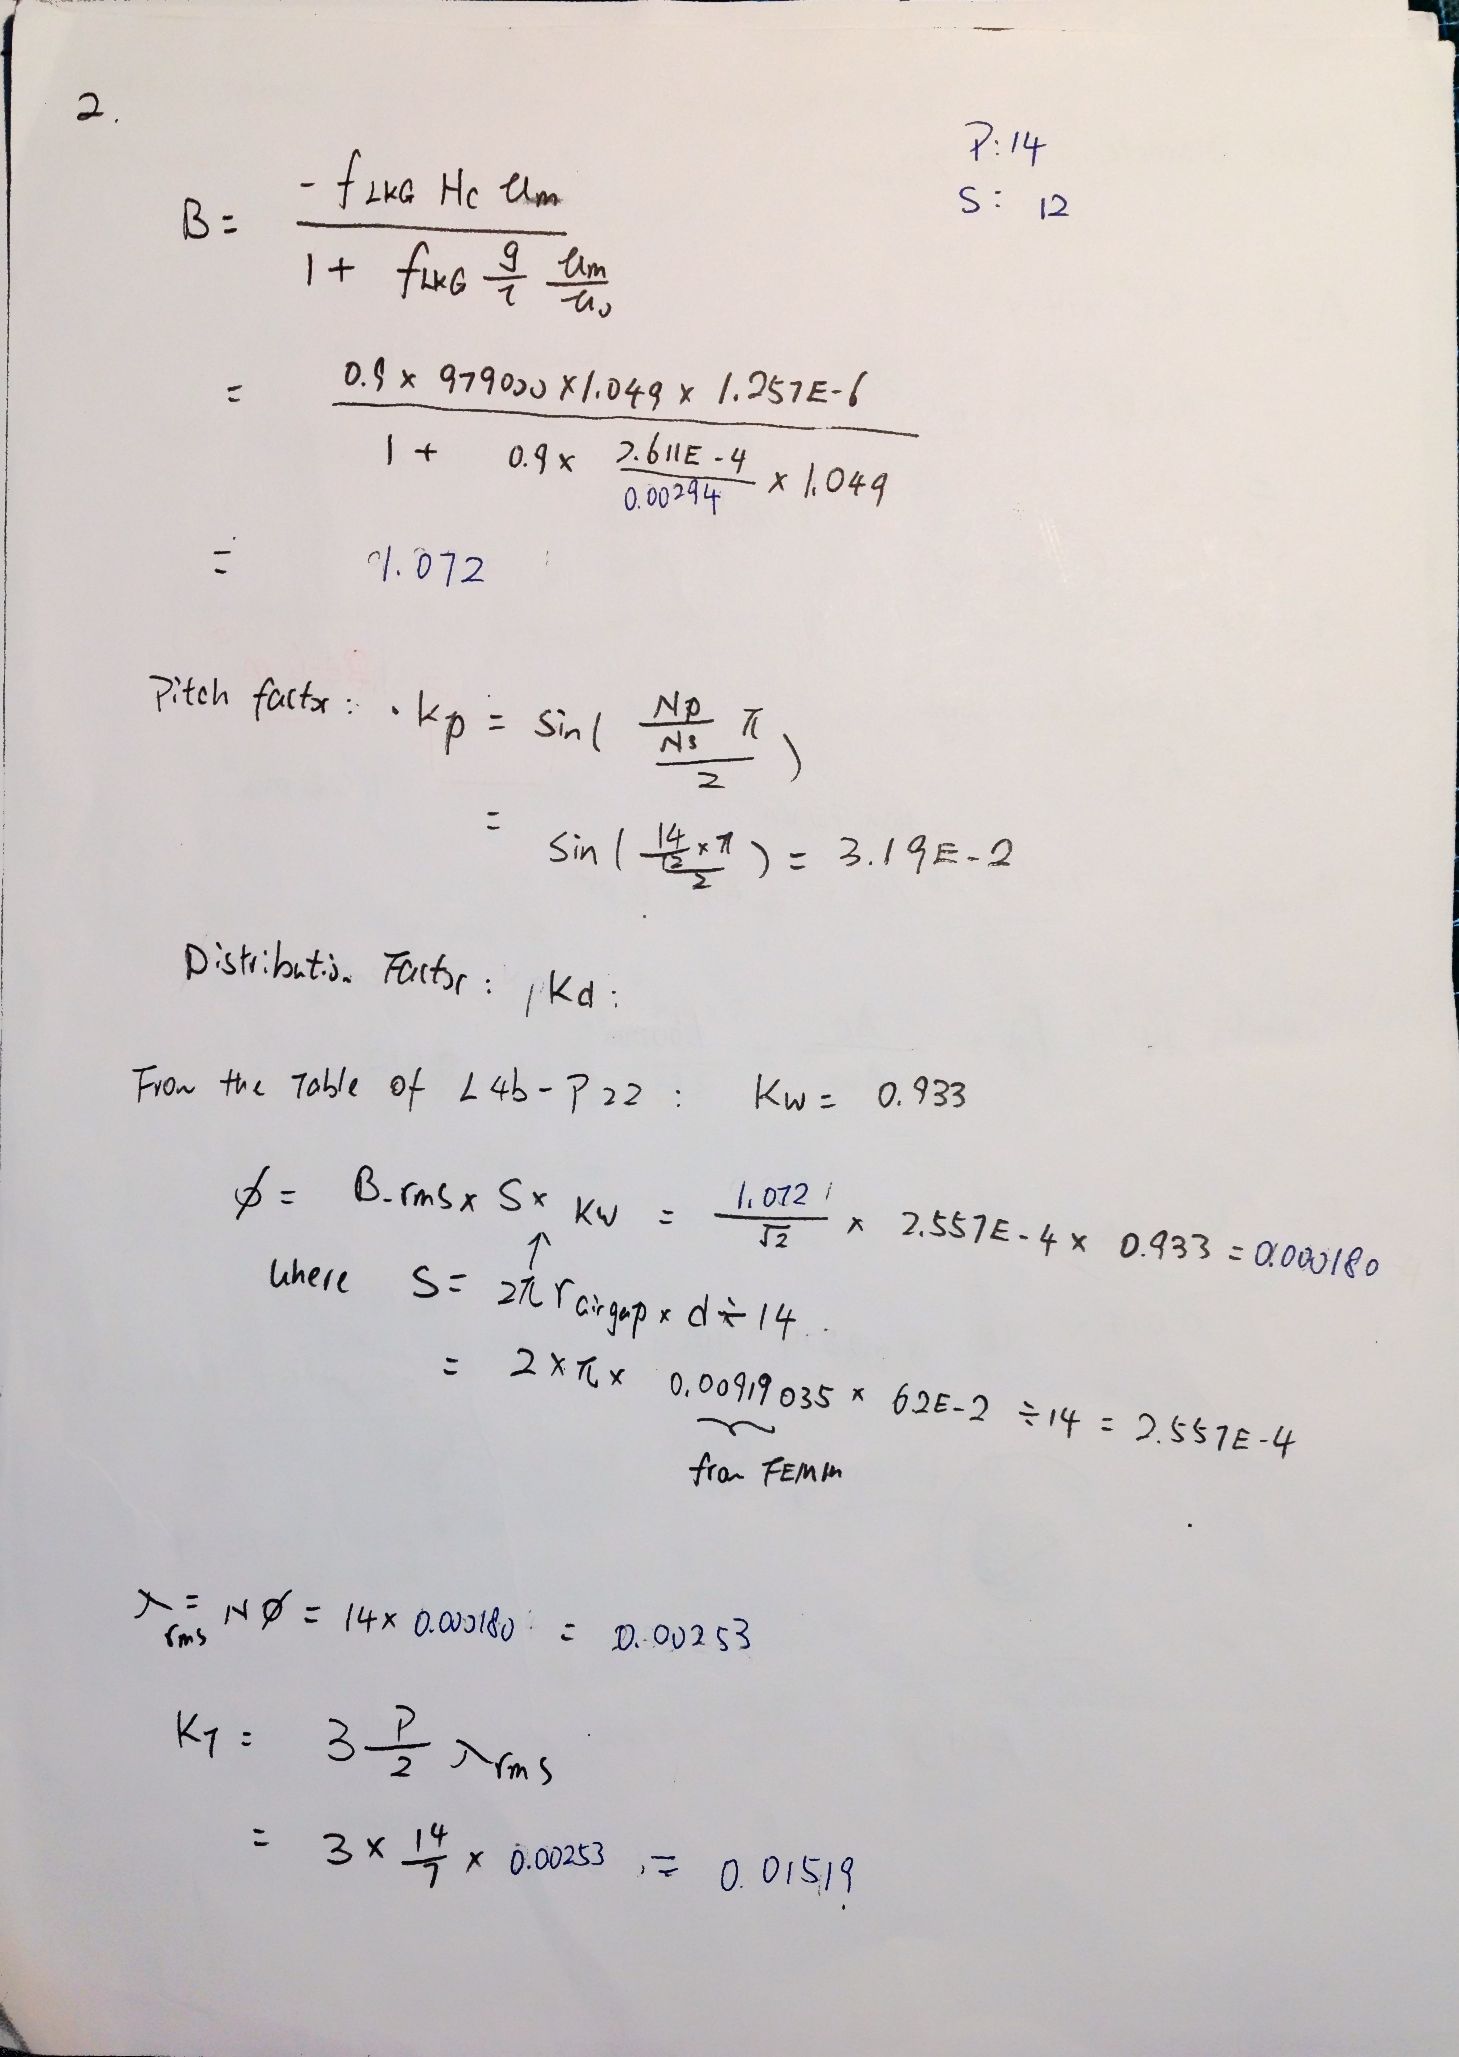 2.
P: 14
S: 12
B = - f LKG Hc μm / 1 + f LKG g/l μm/μ0
= 0.9 × 979000 × 1.049 × 1.257E-6 / 1 + 0.9 × 2.611E-4/0.00294 × 1.049
= 1.072
Pitch factor: · kp = sin( Np/Ns π / 2 )
= sin( 14/12 × π / 2 ) = 3.19E-2
Distribution Factor: Kd:
From the Table of L4b-P22: Kw = 0.933
ϕ = B-rms × S × Kw = 1.072/√2 × 2.557E-4 × 0.933 = 0.000180
where S = 2π r airgap × d ÷ 14
= 2 × π × 0.00919035 × 62E-2 ÷ 14 = 2.557E-4
from FEMM
λrms = Nϕ = 14 × 0.000180 = 0.00253
KT = 3 P/2 λrms
= 3 × 14/7 × 0.00253 = 0.01519